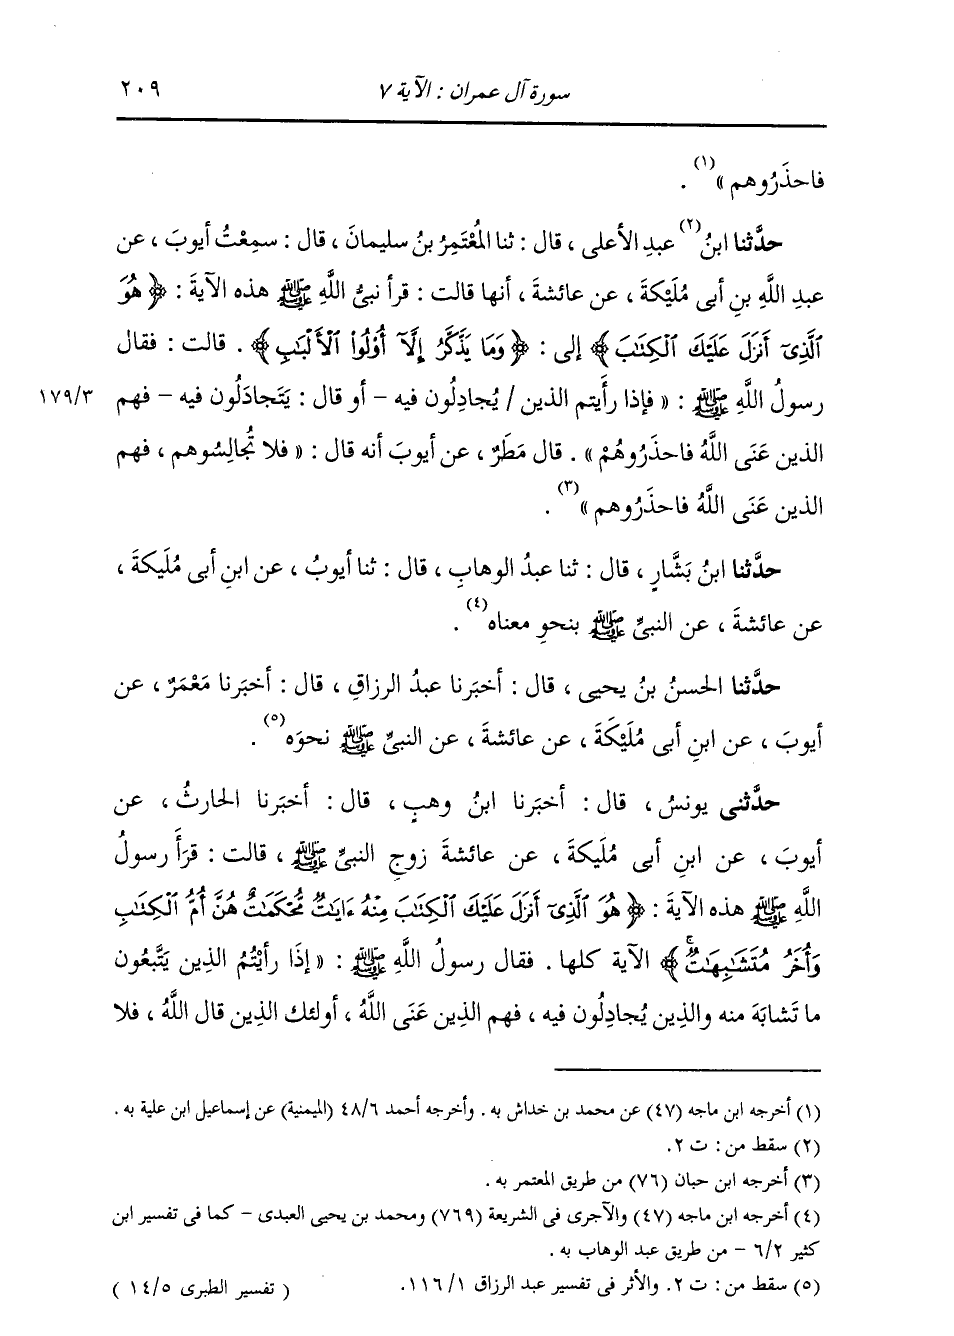 سورة آل عمران : الآية ٧ ٢٠٩
فاحذَرُوهم »(١) .
حدَّثنا ابنُ(٢) عبدِ الأعلى ، قال : ثنا المُعْتَمِرُ بنُ سليمانَ ، قال : سمِعْتُ أيوبَ ، عن
عبدِ اللَّهِ بنِ أبى مُلَيْكةَ ، عن عائشةَ ، أنها قالت : قرأ نبىُّ اللَّهِ ﷺ هذه الآيةَ : ﴿ هُوَ
ٱلَّذِىٓ أَنزَلَ عَلَيْكَ ٱلْكِتَٰبَ ﴾ إلى : ﴿ وَمَا يَذَّكَّرُ إِلَّآ أُوْلُواْ ٱلْأَلْبَٰبِ ﴾ . قالت : فقال
رسولُ اللَّهِ ﷺ : « فإذا رأَيتم الذين / يُجادِلُون فيه – أو قال : يَتَجادَلُون فيه – فهم ١٧٩/٣
الذين عَنَى اللَّهُ فاحذَرُوهُمْ » . قال مَطَرٌ ، عن أيوبَ أنه قال : « فلا تُجالِسُوهم ، فهم
الذين عَنَى اللَّهُ فاحذَرُوهم »(٣) .
حدَّثنا ابنُ بَشَّارٍ ، قال : ثنا عبدُ الوهابِ ، قال : ثنا أيوبُ ، عن ابنِ أبى مُلَيكةَ ،
عن عائشةَ ، عن النبىِّ ﷺ بنحوِ معناه(٤) .
حدَّثنا الحسنُ بنُ يحيى ، قال : أخبَرنا عبدُ الرزاقِ ، قال : أخبَرنا مَعْمَرٌ ، عن
أيوبَ ، عن ابنِ أبى مُلَيْكَةَ ، عن عائشةَ ، عن النبىِّ ﷺ نحوَه(٥) .
حدَّثنى يونسُ ، قال : أخبَرنا ابنُ وهبٍ ، قال : أخبَرنا الحارثُ ، عن
أيوبَ ، عن ابنِ أبى مُلَيكةَ ، عن عائشةَ زوجِ النبىِّ ﷺ ، قالت : قرَأَ رسولُ
اللَّهِ ﷺ هذه الآيةَ : ﴿ هُوَ ٱلَّذِىٓ أَنزَلَ عَلَيْكَ ٱلْكِتَٰبَ مِنْهُ ءَايَٰتٌ مُّحْكَمَٰتٌ هُنَّ أُمُّ ٱلْكِتَٰبِ
وَأُخَرُ مُتَشَٰبِهَٰتٌ ۖ ﴾ الآية كلها . فقال رسولُ اللَّهِ ﷺ : « إذَا رأَيْتُمُ الذين يَتَّبعُون
ما تَشابَهَ منه والذين يُجادِلُون فيه ، فهم الذين عَنَى اللَّهُ ، أولئك الذين قال اللَّهُ ، فلا
(١) أخرجه ابن ماجه (٤٧) عن محمد بن خداش به . وأخرجه أحمد ٤٨/٦ (الميمنية) عن إسماعيل ابن علية به .
(٢) سقط من : ت ٢.
(٣) أخرجه ابن حبان (٧٦) من طريق المعتمر به .
(٤) أخرجه ابن ماجه (٤٧) والآجرى فى الشريعة (٧٦٩) ومحمد بن يحيى العبدى – كما فى تفسير ابن
كثير ٦/٢ – من طريق عبد الوهاب به .
(٥) سقط من : ت ٢. والأثر فى تفسير عبد الرزاق ١١٦/١. ( تفسير الطبرى ١٤/٥ )